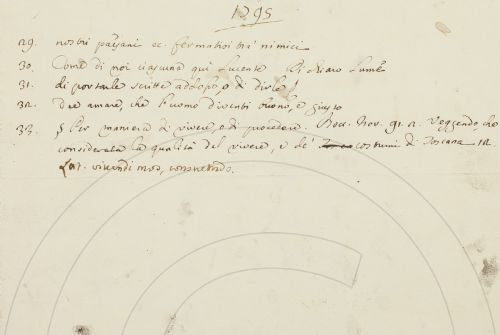 1295
29. nostri paesani ec. fermatosi tra' nimici
30. Come di noi ciascuna qui lucente Di chiaro lume
31. di portarle scritte addosso, o di dirle
32. Dee amare, che l'uomo diventi buono, e giusto
33. § Per maniera di vivere, e di procedere. Bocc. Nov. 91. 2. Veggendo, che
considerata la qualità del vivere, e de' costumi di Toscana 12.
Lat. vivendi mos, consuetudo.